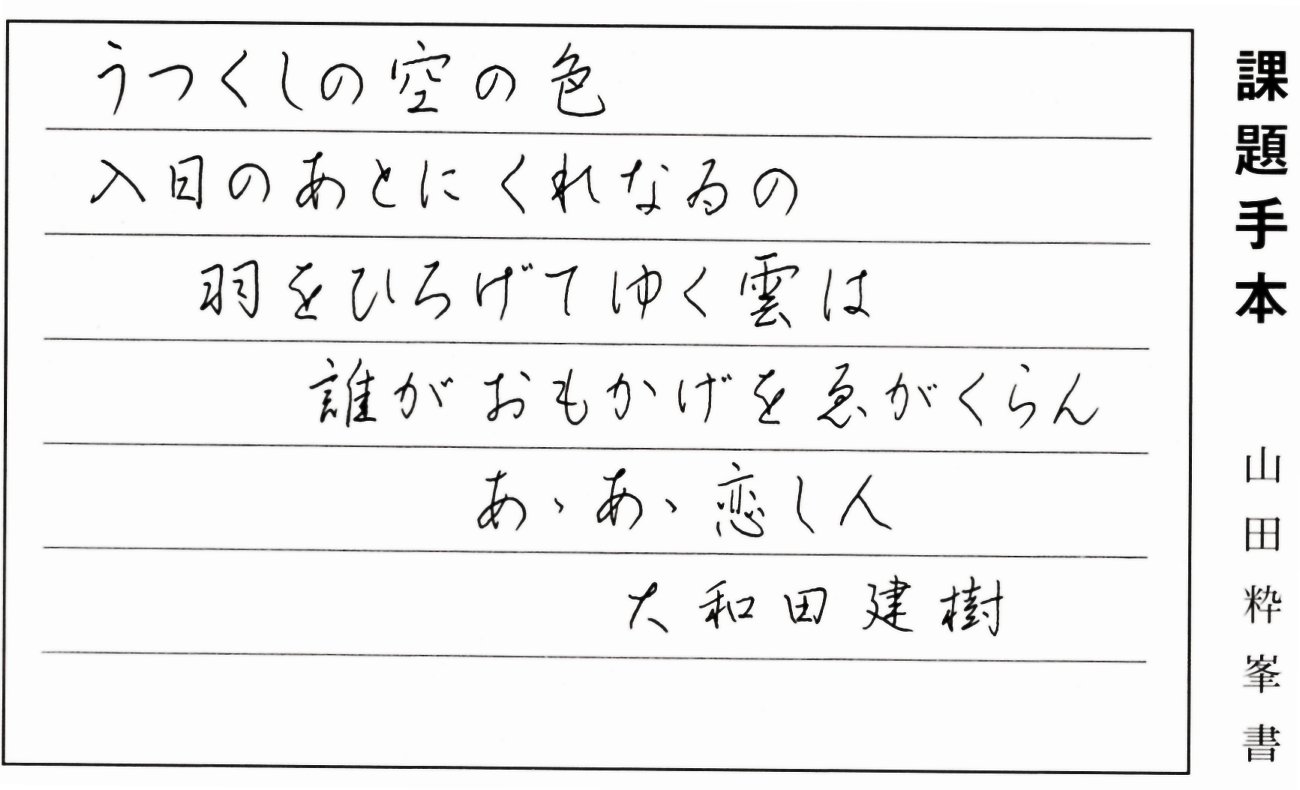 うつくしの空の色
入日のあとにくれなゐの
羽をひろげてゆく雲は
誰がおもかげをゑがくらん
あゝあゝ恋し人
大和田建樹
課題手本 山田粋峯書